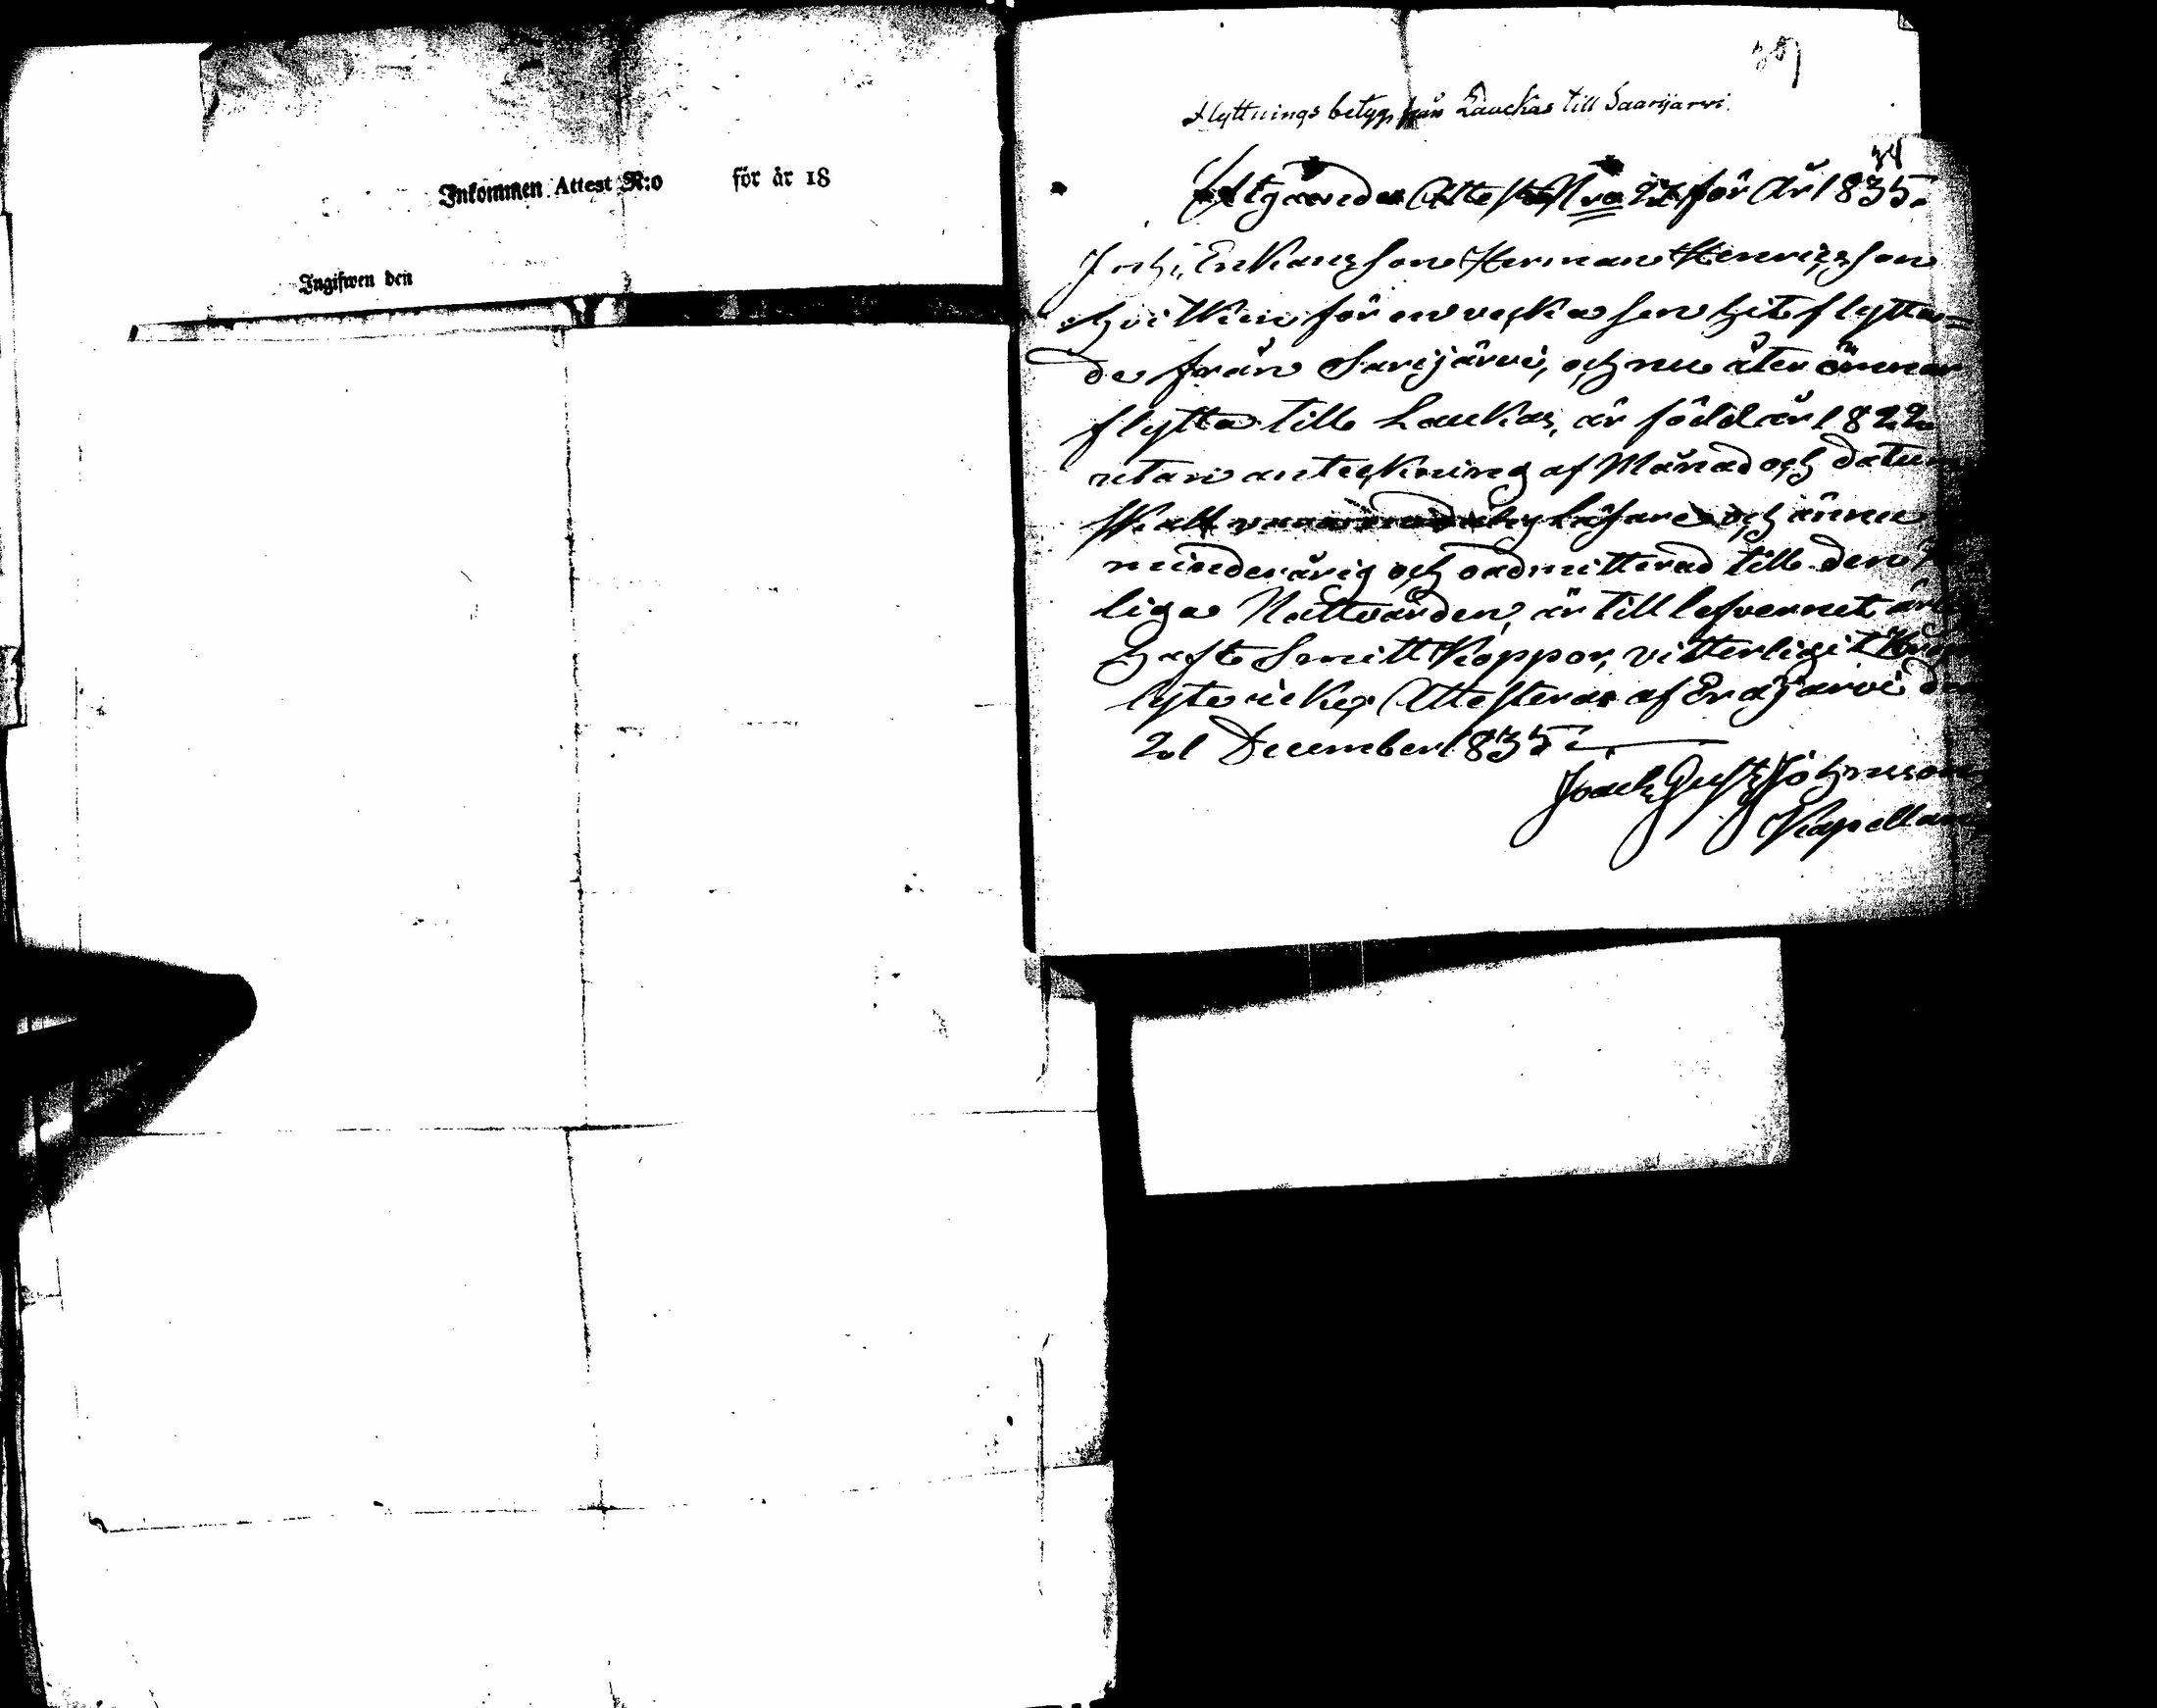 Inkommen Attest N:o för år 18
Ingifwen den
Flyttnings betyg från Lauckas till Saarijarvi.
Utgående Attest Nro 22 för År 1835.
Enkans son Herman Henricsson
hvilken för en vecka sen hit flytta-
de från Sarijärvi, och nu åter ämnar
flytta till Laukas, är född år 1822
utan anteckning af Månad och datum
Läsare och ännu
minderårig och oadmitterad till den
liga Nattvarden, är till lefvernet
haft Smittkoppor, vitterligit
lyte icke, Attesteras af Eräjärvi den
21 December 1835.
Gust Johnsson
Kapellan